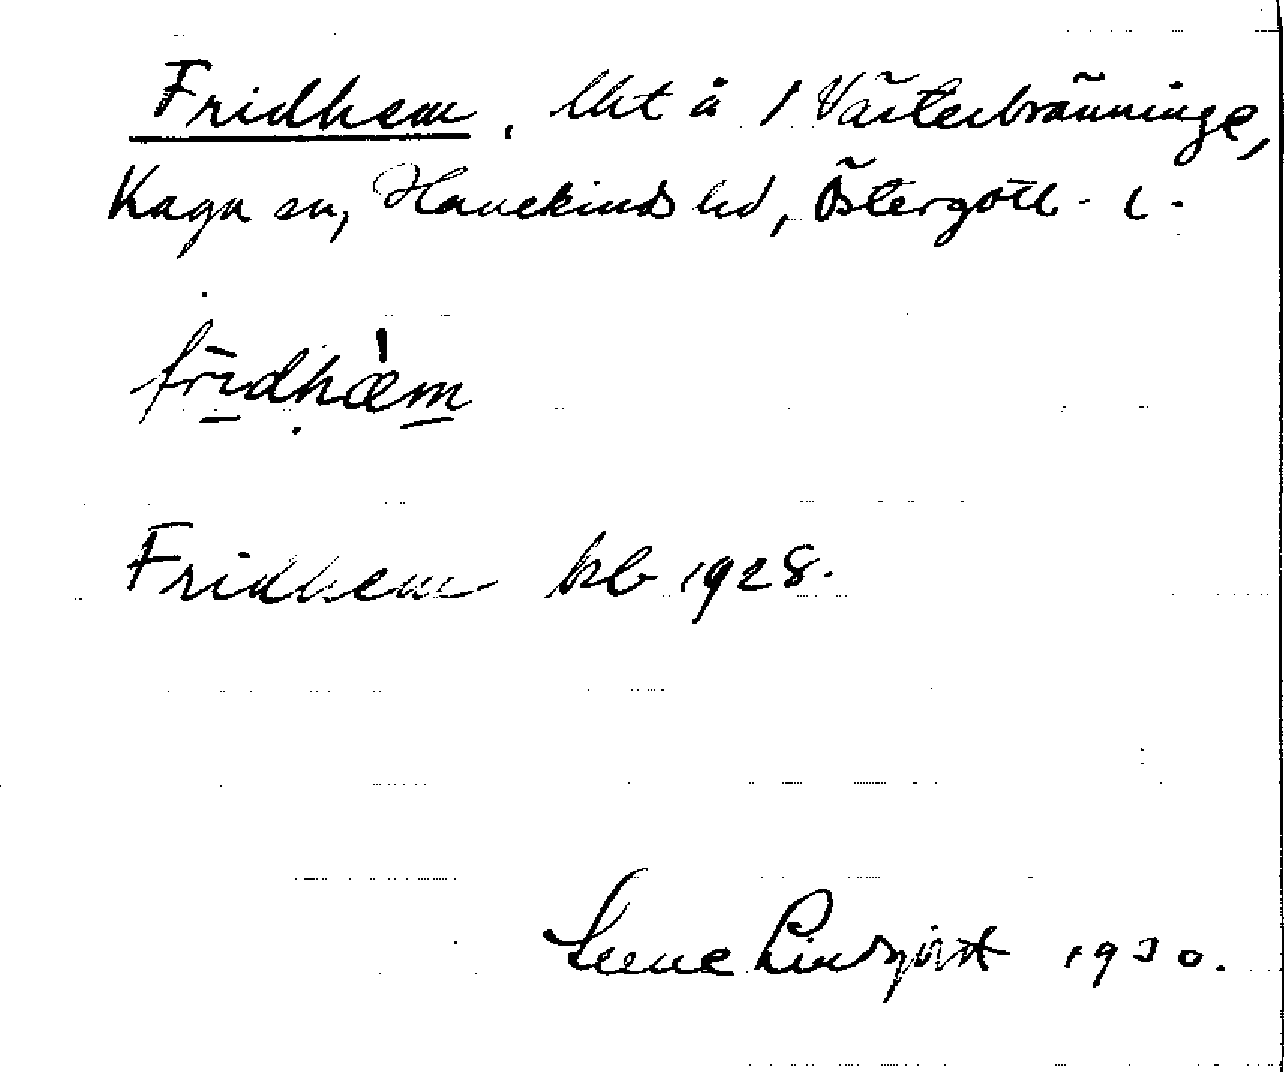 Fridhem, lht å 1 Västerbränninge,
Kaga sn, Hanekinds hd, Östergötl. l.
fridhæm
Fridhem kb 1928.
Sune Lindqvist 1930.